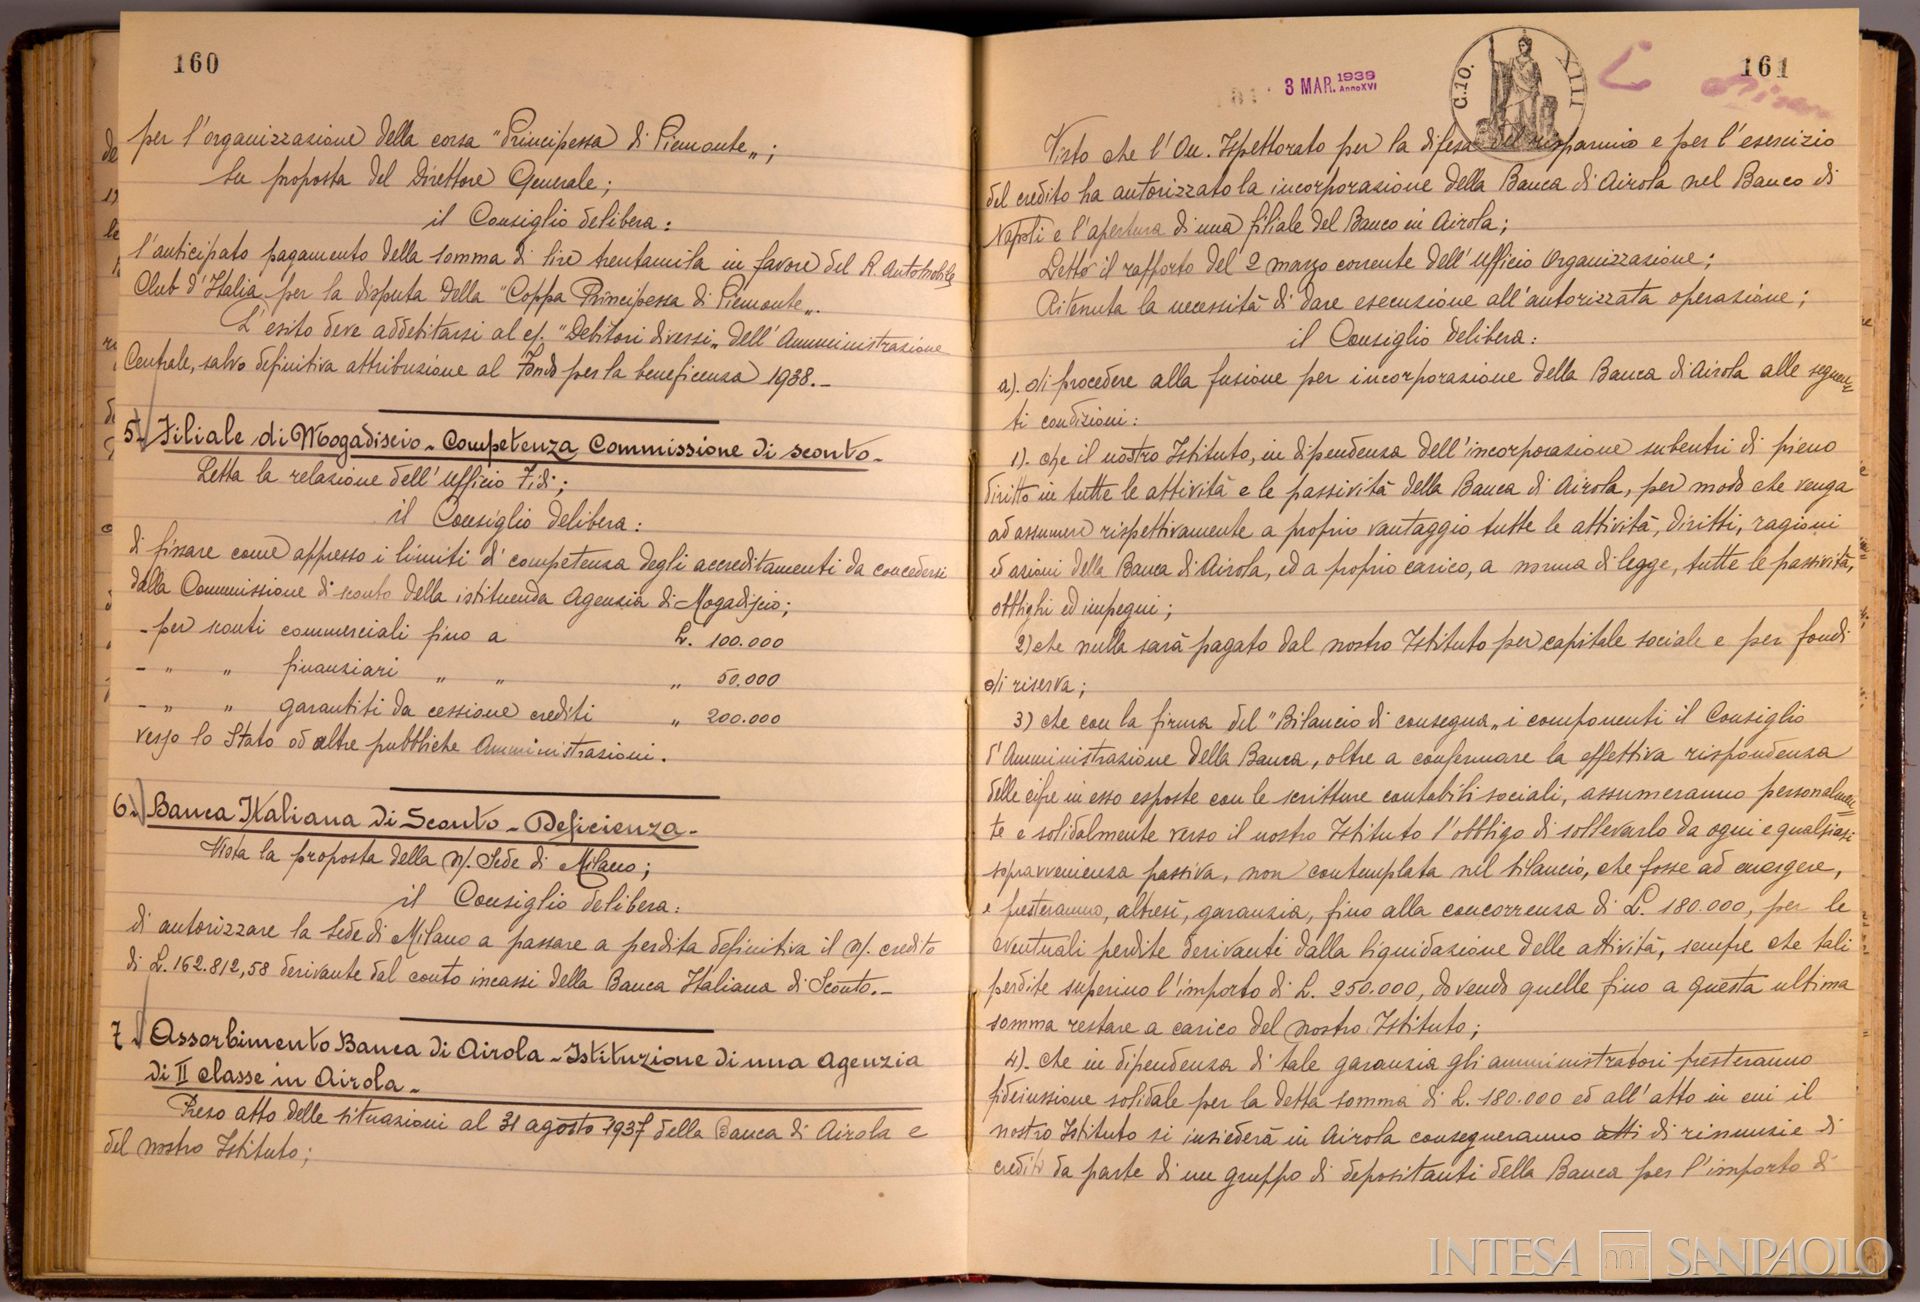 160
per l'organizzazione della corsa "Principessa di Piemonte„;
su proposta del Direttore Generale;
il Consiglio delibera:
l'anticipato pagamento della somma di lire trentamila in favore del R. Automobile
Club d'Italia per la disputa della "Coppa Principessa di Piemonte„.
L'esito deve addebitarsi al c/. "Debitori diversi„ dell'Amministrazione
Centrale, salvo definitiva attribuzione al Fondo per la beneficenza 1938.-
5). Filiale di Mogadiscio - Competenza Commissione di sconto.-
Letta la relazione dell'Ufficio Fidi;
il Consiglio delibera:
di fissare come appresso i limiti di competenza degli accreditamenti da concedersi
dalla Commissione di sconto della istituenda Agenzia di Mogadiscio;
- per sconti commerciali fino a L. 100.000
- " " finanziari " " " 50.000
- " " garantiti da cessione crediti " 200.000
verso lo Stato od altre pubbliche Amministrazioni.
6.) Banca Italiana di Sconto - Deficienza.-
Vista la proposta della n/. Sede di Milano;
il Consiglio delibera:
di autorizzare la Sede di Milano a passare a perdita definitiva il n/. credito
di L. 162.812,58 derivante dal conto incassi della Banca Italiana di Sconto.-
7.) Assorbimento Banca di Airola - Istituzione di una Agenzia
di II classe in Airola.-
Preso atto delle situazioni al 31 agosto 1937 della Banca di Airola e
del nostro Istituto;
3 MAR. 1938
Anno XVI
C.10. XIII
161
Visto che l'On. Ispettorato per la difesa del risparmio e per l'esercizio
del credito ha autorizzato la incorporazione della Banca di Airola nel Banco di
Napoli e l'apertura di una filiale del Banco in Airola;
Letto il rapporto del 2 marzo corrente dell'Ufficio Organizzazione;
Ritenuta la necessità di dare esecuzione all'autorizzata operazione;
il Consiglio delibera:
a). di procedere alla fusione per incorporazione della Banca di Airola alle seguen=
ti condizioni:
1). che il nostro Istituto, in dipendenza dell'incorporazione subentri di pieno
diritto in tutte le attività e le passività della Banca di Airola, per modo che venga
ad assumere rispettivamente a proprio vantaggio tutte le attività, diritti, ragioni
ed azioni della Banca di Airola, ed a proprio carico, a norma di legge, tutte le passività,
obblighi ed impegni;
2) che nulla sarà pagato dal nostro Istituto per capitale sociale e per fondi
di riserva;
3) che con la firma del "Bilancio di consegna„ i componenti il Consiglio
d'Amministrazione della Banca, oltre a confermare la effettiva rispondenza
delle cifre in esso esposte con le scritture contabili sociali, assumeranno personalmen=
te e solidalmente verso il nostro Istituto l'obbligo di sollevarlo da ogni e qualsiasi
sopravvenienza passiva, non contemplata nel bilancio, che fosse ad emergere,
e presteranno, altresì, garanzia, fino alla concorrenza di L. 180.000, per le
eventuali perdite derivanti dalla liquidazione delle attività, sempre che tali
perdite superino l'importo di L. 250.000, dovendo quelle fino a questa ultima
somma restare a carico del nostro Istituto;
4). che in dipendenza di tale garanzia gli amministratori presteranno
fideiussione solidale per la detta somma di L. 180.000 ed all'atto in cui il
nostro Istituto si insiederà in Airola consegneranno atti di rinunzie di
crediti da parte di un gruppo di depositanti della Banca per l'importo di
INTESA SANPAOLO